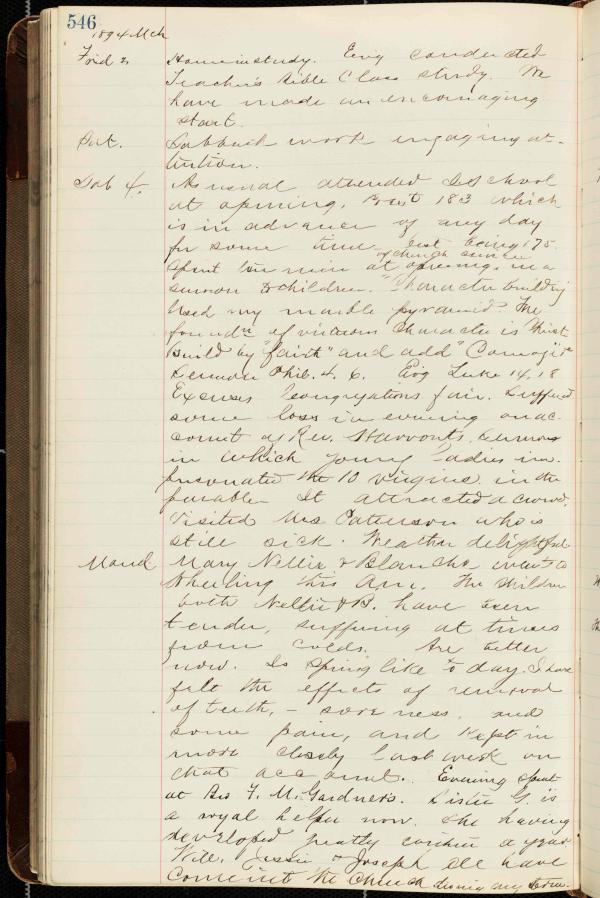 546
1894 Mch
Frid 2. Home in study. Evig conducted
Teacher's Bible Class study. We
have made an encouraging
start.
Sat. Sabbath work engaging at-
tention.
Sab 4. As usual attended S School
at opening. Pres't 183 which
is in advance of any day
for some time last being 175
of church service
Spent ten min at opening, in a
sermon to children. "Character building
Used my marble pyramid. The
foundn of virtuous character is Christ
Build by "faith" and add "Courage"
Sermon Phil. 4. 6. Evig Luke 14, 18
Excuses Congregations fair. Suffered
some loss in evening on ac-
count of Rev. sermon
in which young ladies im-
personated the 10 virgins in the
parable. It attracted a crowd.
Visited Mrs Patterson who is
still sick. Weather delightful
Mond Mary Nellie & Blanche went to
Wheeling this Am. The children
both Nellie & B. have been
tender, suffering at times
from colds. Are better
now. Is Spring like to day. I have
felt the effects of removal
of teeth, - soreness, and
some pain, and kept in
more closely last week on
that account. Evening spent
at Bro F. M. Gardner's. Sister G. is
a royal helper now. She having
developed greatly within a year
Will, Jessie & Joseph all have
come into the Church during my term.